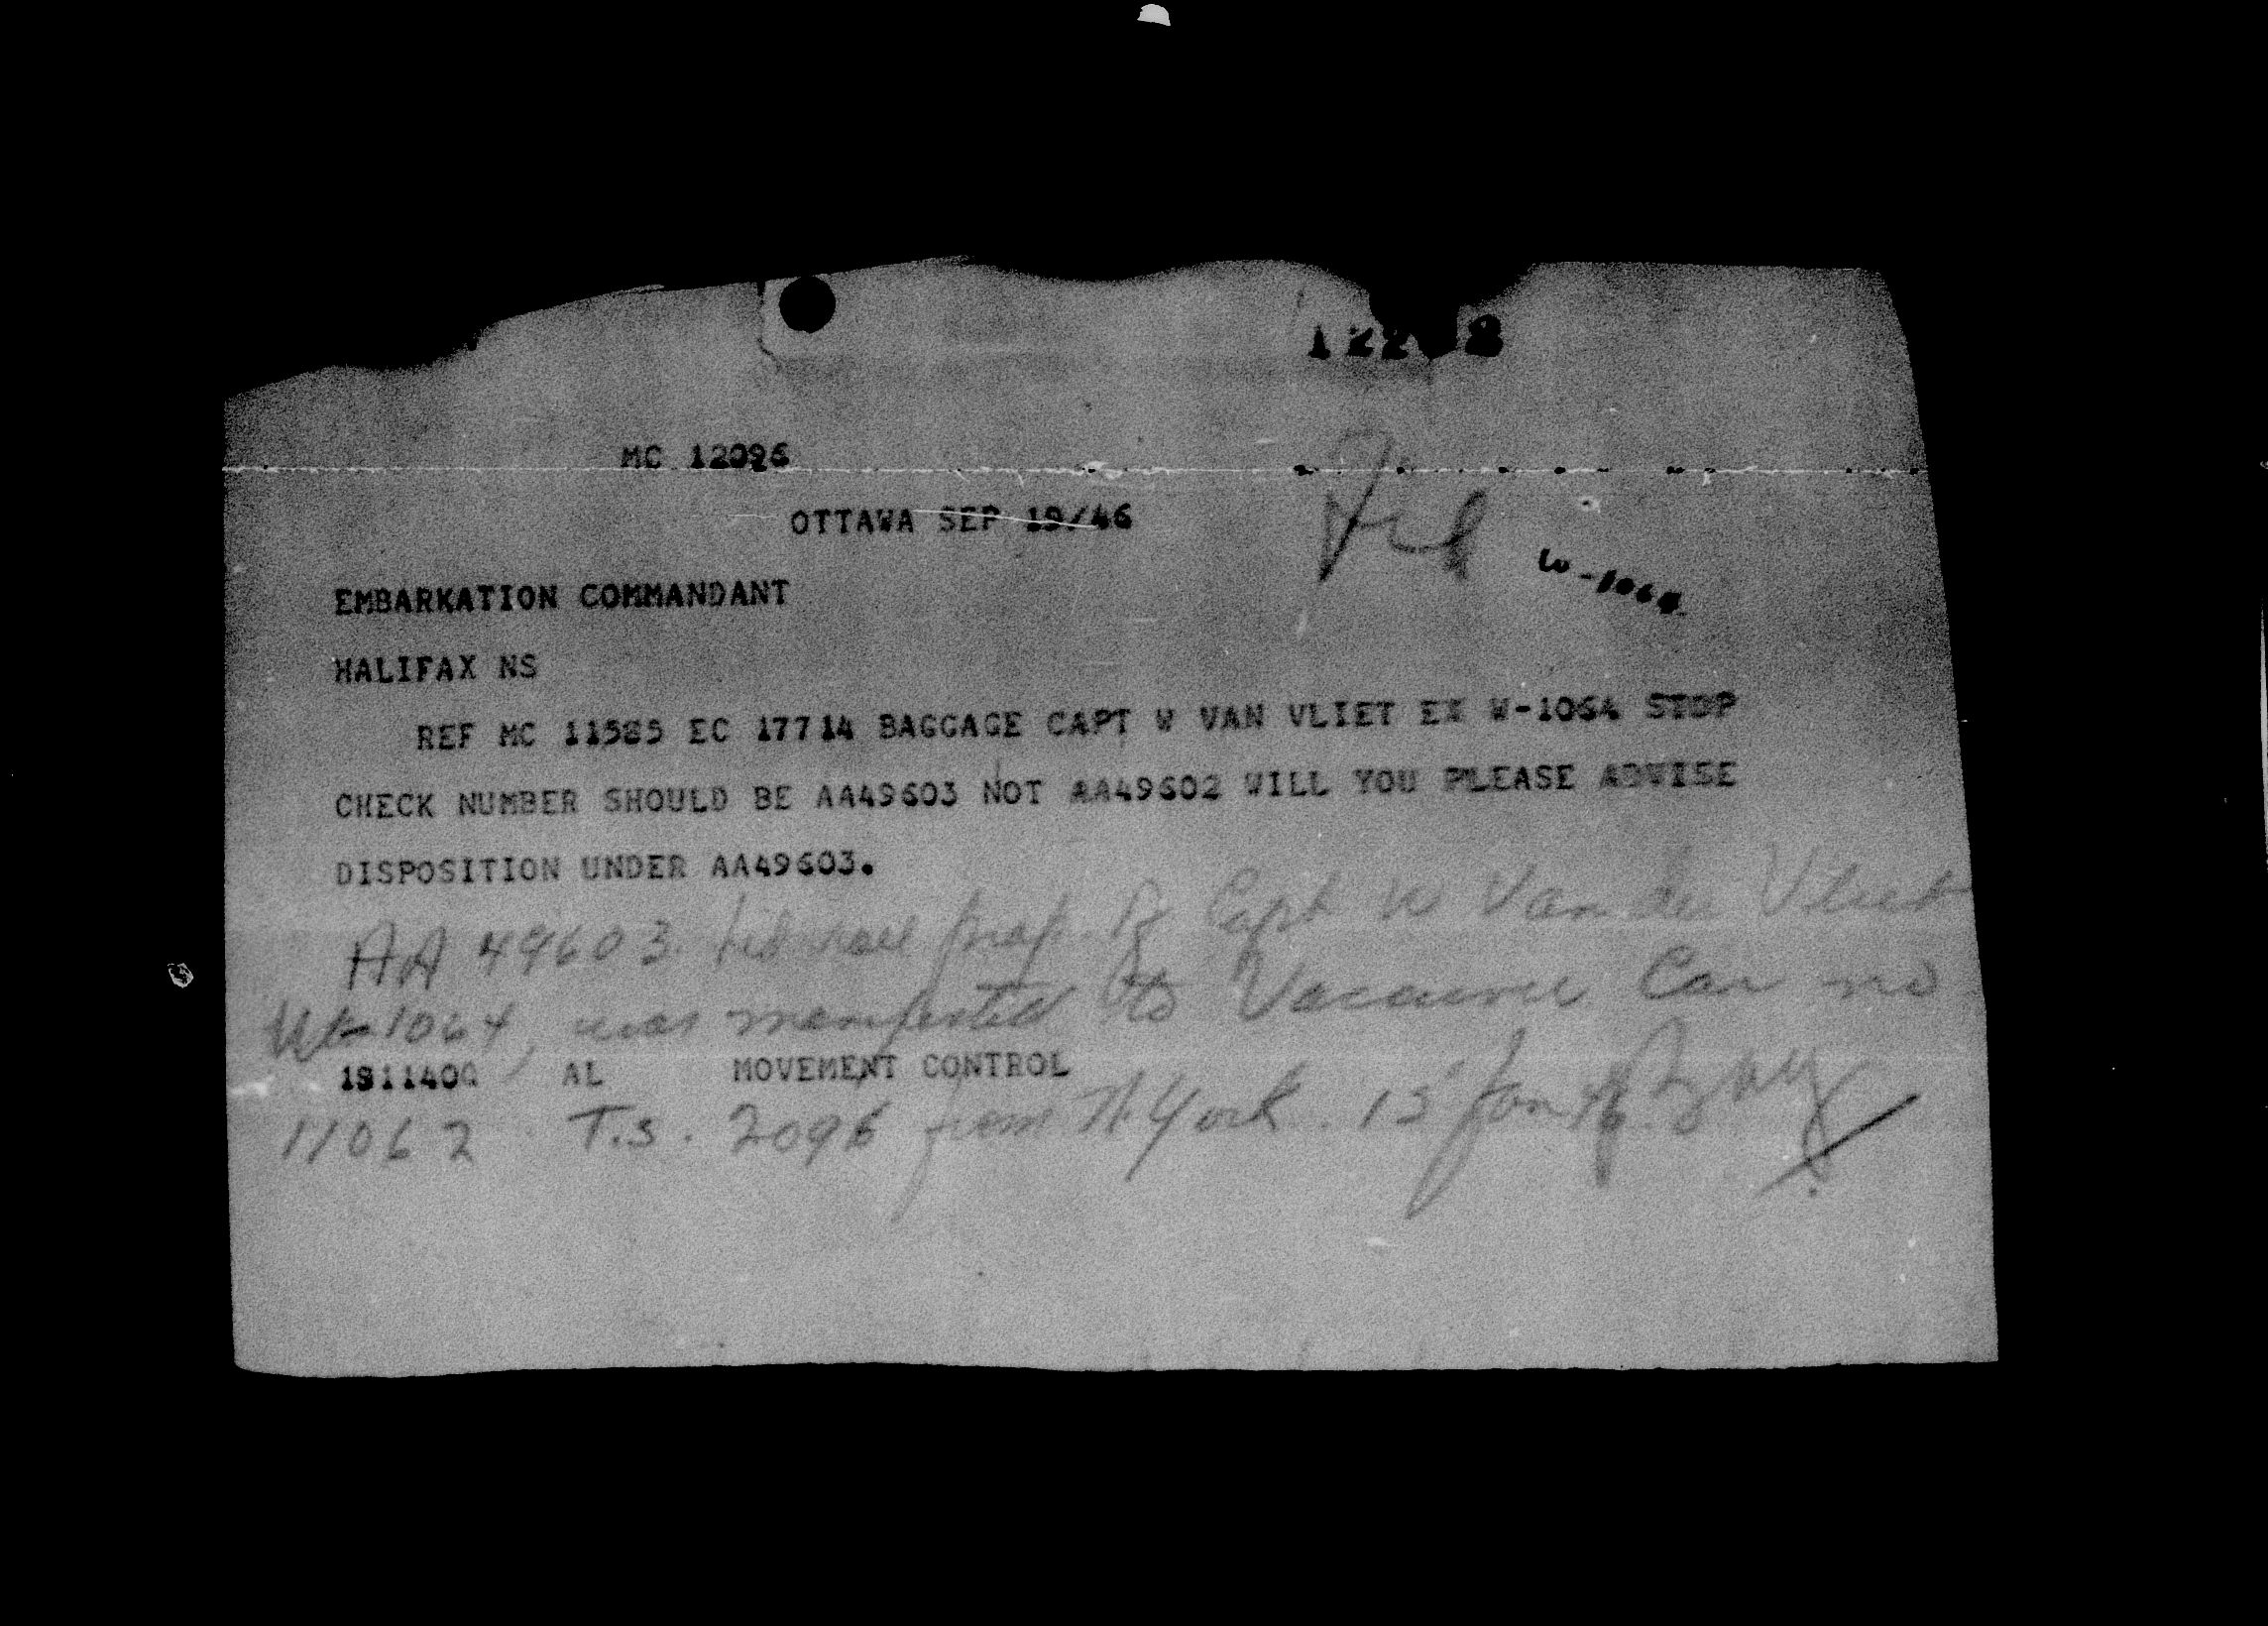 MC 12096
OTTAWA SEP 19/46
W-1064
EMBARKATION COMMANDANT
HALIFAX NS
REF MC 11585 EC 17714 BAGGAGE CAPT W VAN VLIET EX W-1064 STOP
CHECK NUMBER SHOULD BE AA49603 NOT AA49602 WILL YOU PLEASE ADVISE
DISPOSITION UNDER AA49603.
AA 49603 Capt W Van der Vliet
1064, was manifested to Car no
191140Q AL MOVEMENT CONTROL
11062 T.S. 2096 from N. York. 15 Jan 46